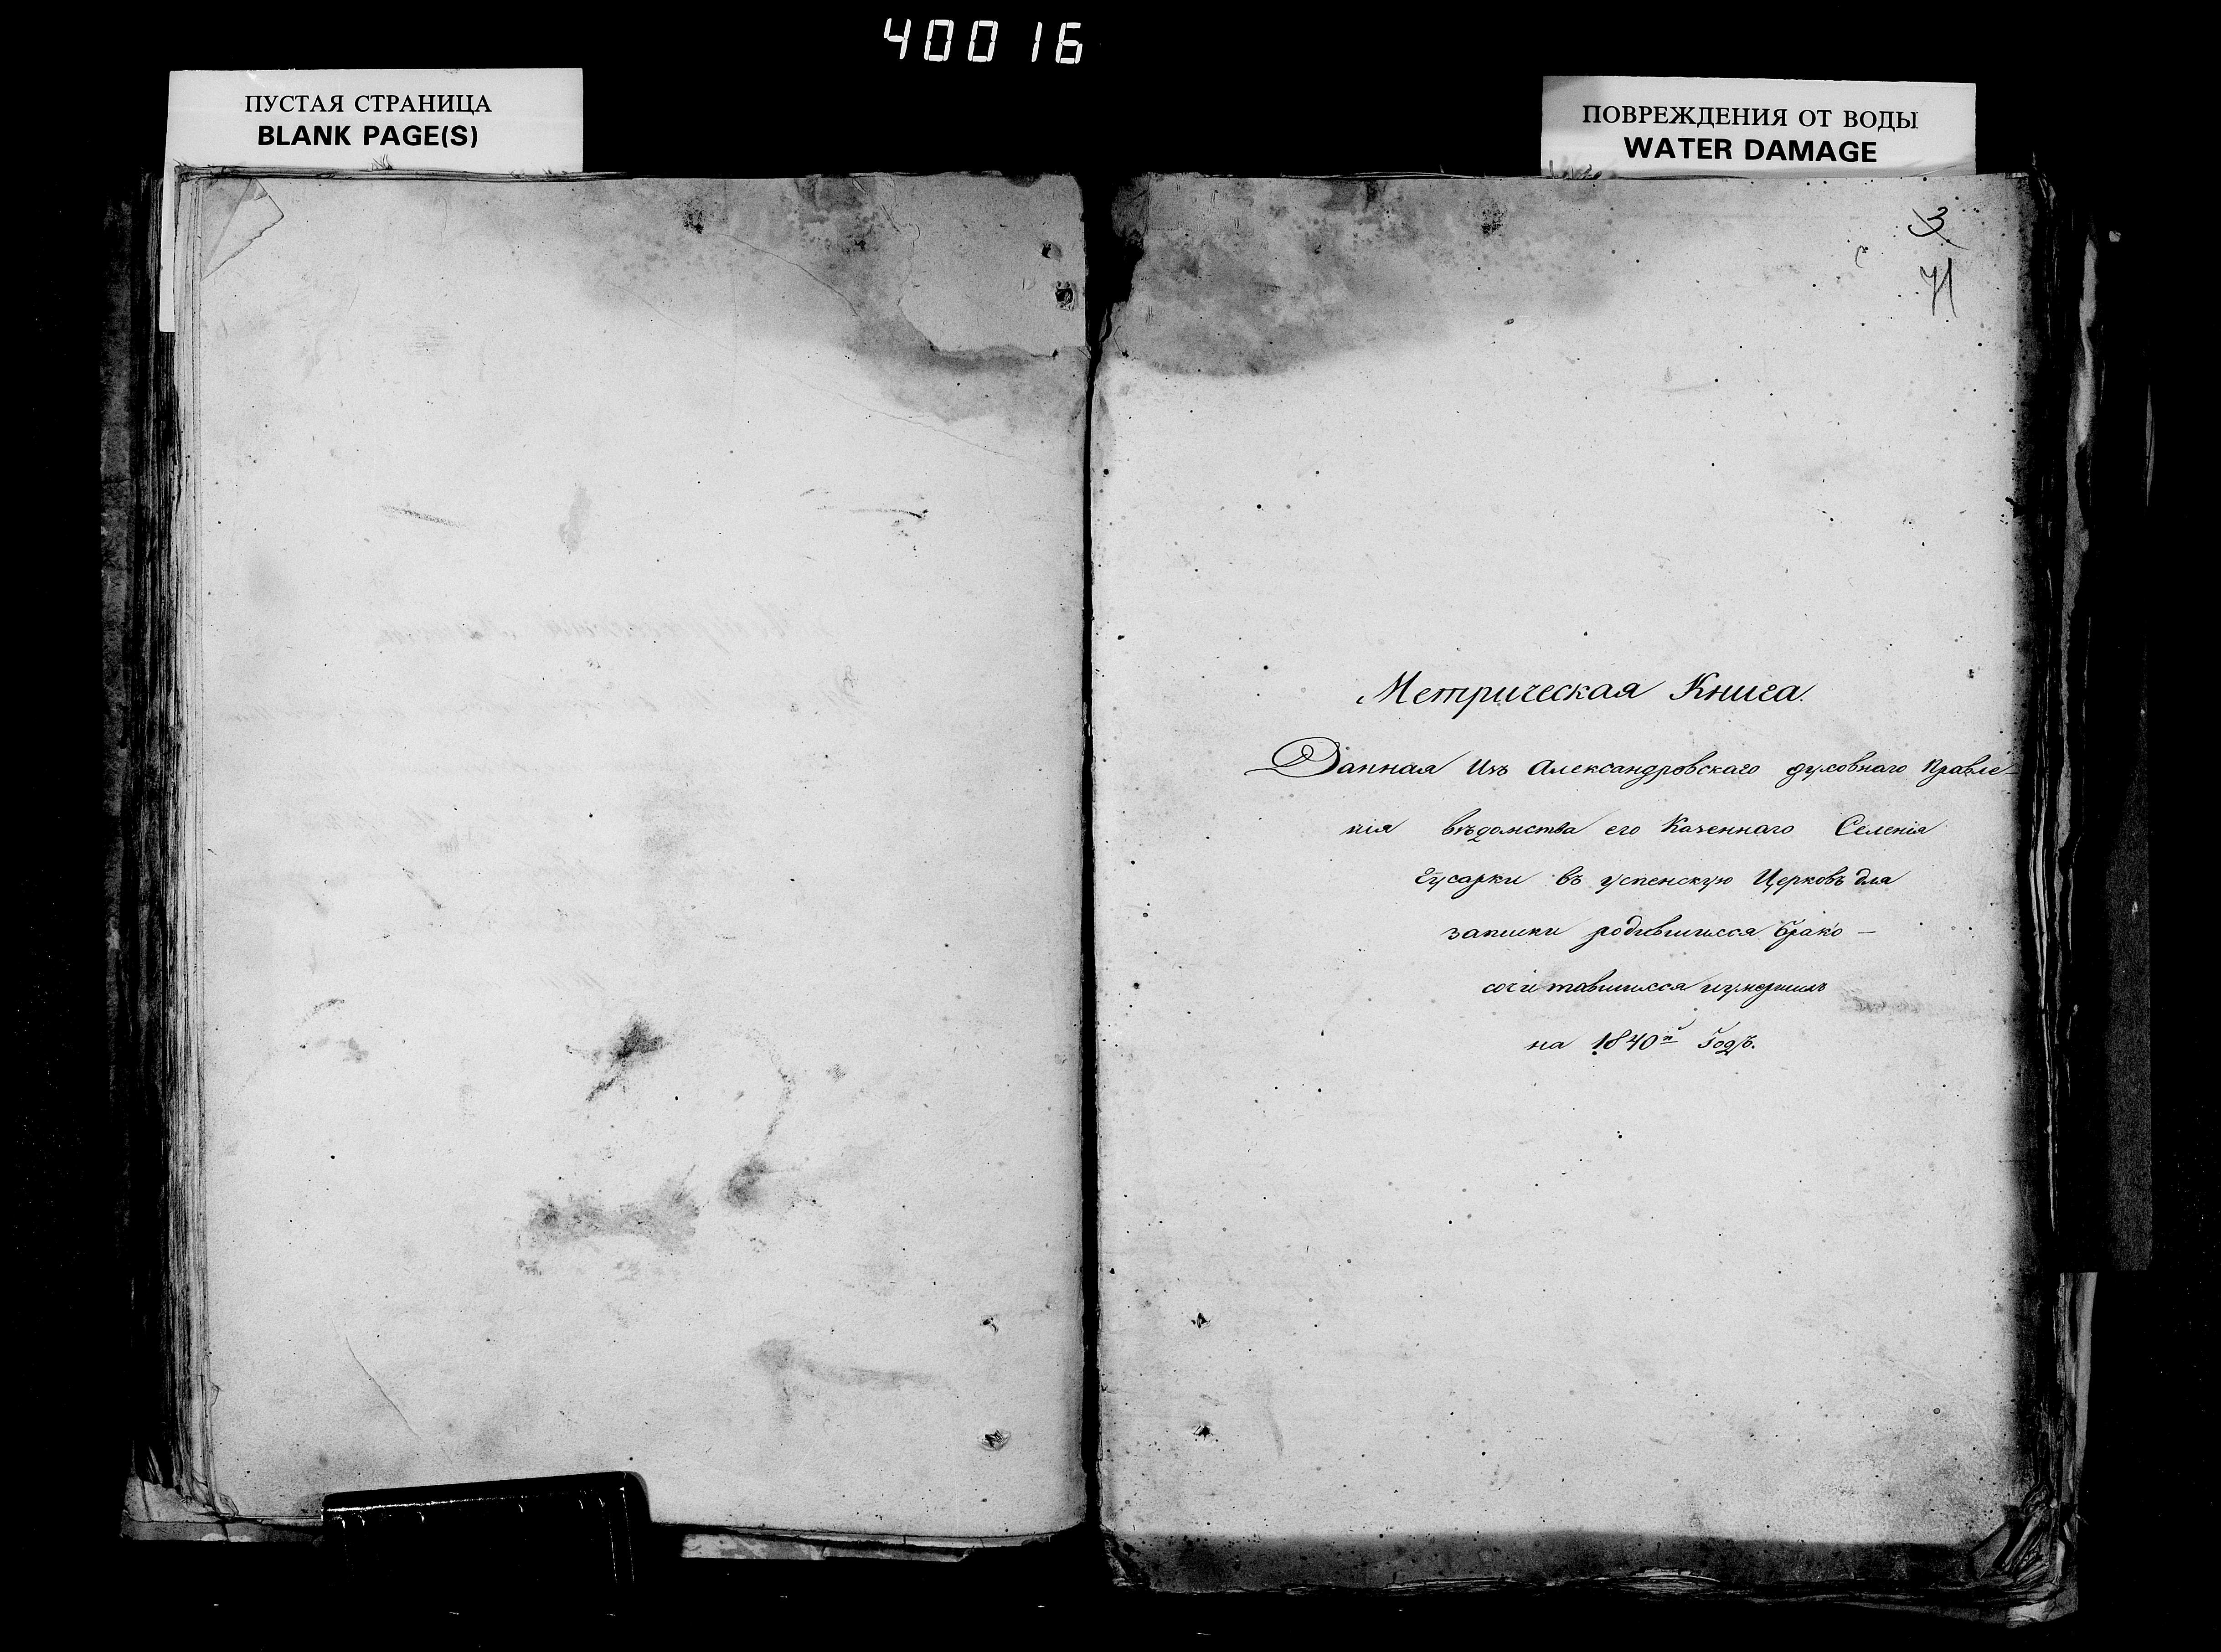 40016
ПУСТАЯ СТРАНИЦА
BLANK PAGE(S)
ПОВРЕЖДЕНИЯ ОТ ВОДЫ
WATER DAMAGE
3
71
Метрическая Книга.
Данная Изъ Александровскаго духовнаго правле-
нія вѣдомства его Казеннаго Селенія
Гусарки въ успенскую Церковь для
записки родившихся брако-
сочитавшихся иумершихъ
на 1840й Годъ.